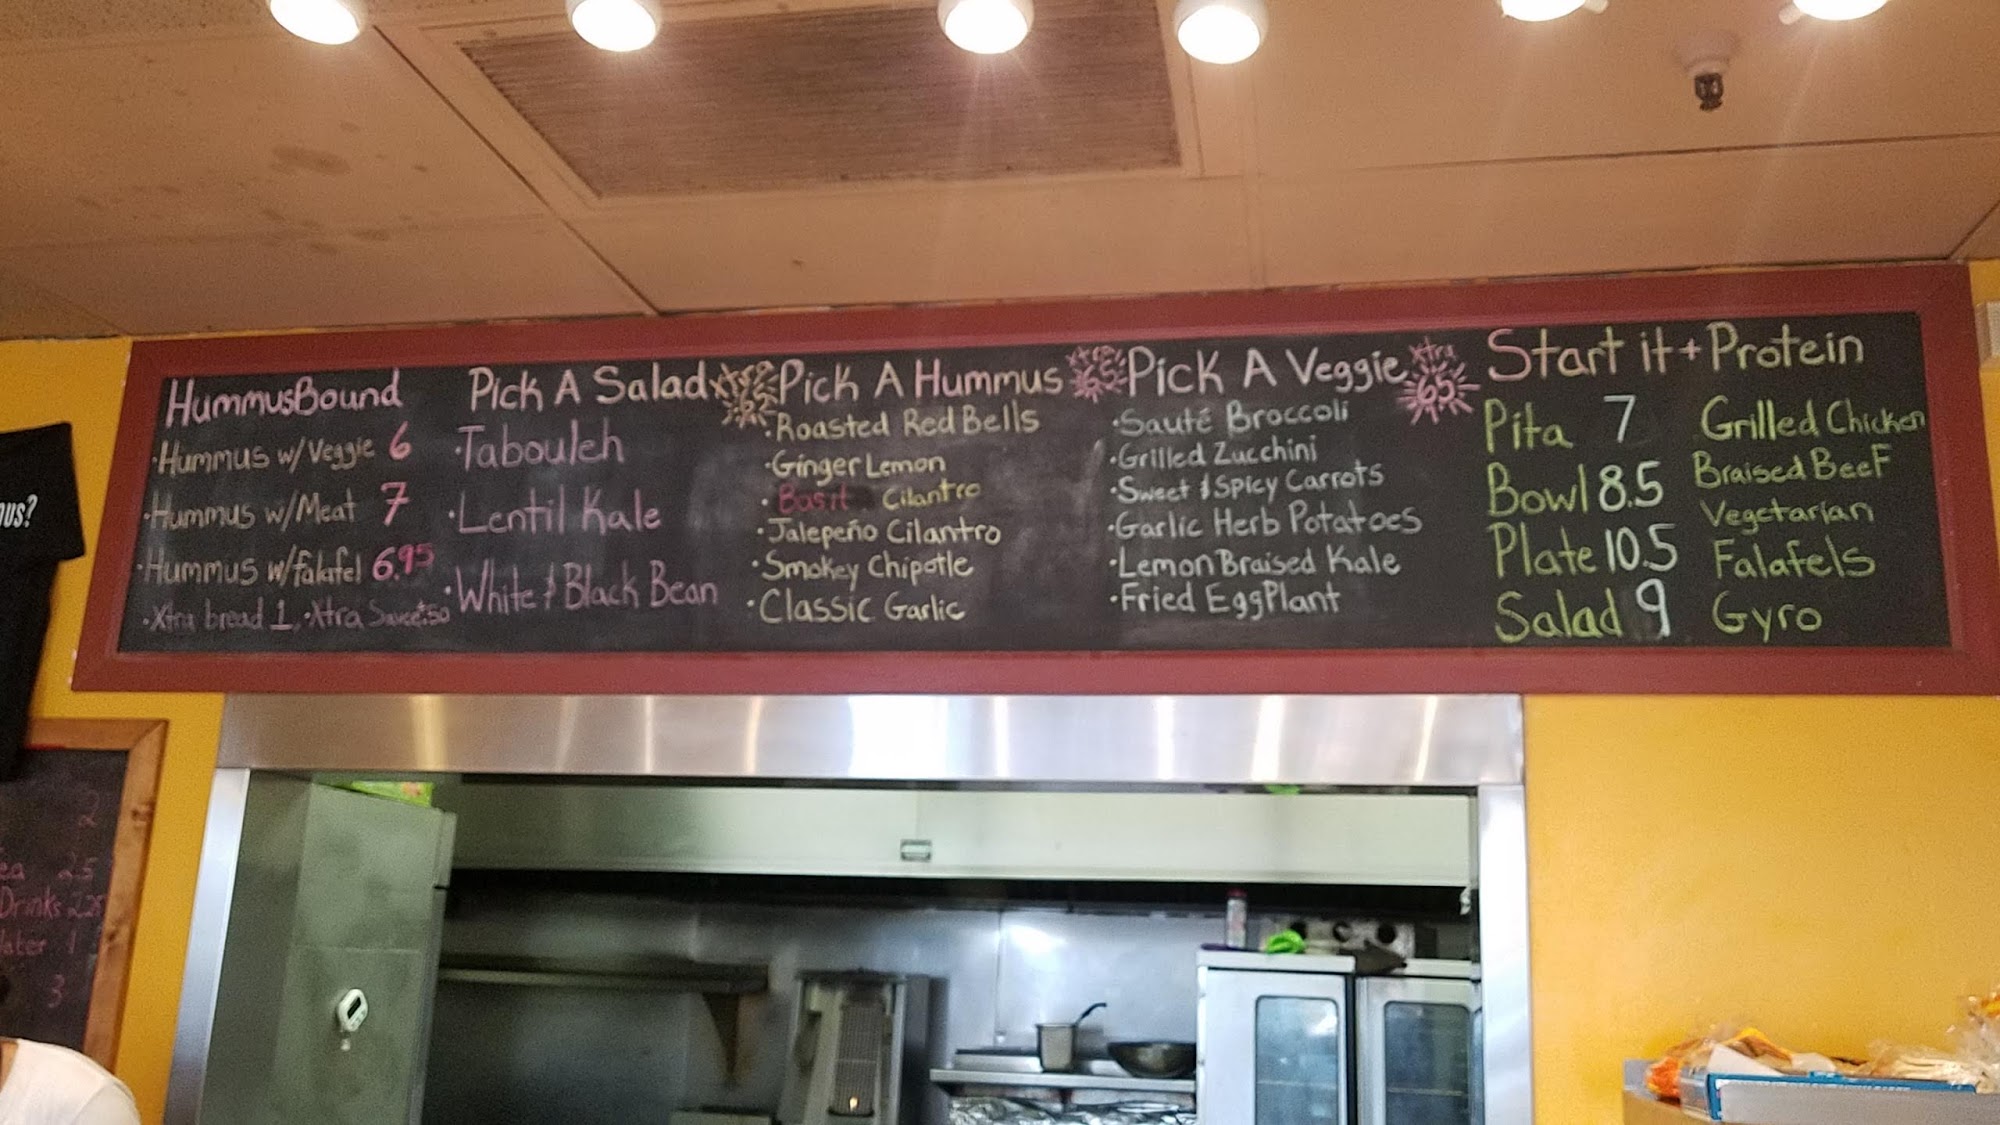 HummusBound
·Hummus w/Veggie 6
·Hummus w/Meat 7
·Hummus w/falafel 6.95
·Xtra bread 1, ·Xtra Sauce .50
Pick A Salad
xtra
·Tabouleh
·Lentil Kale
·White & Black Bean
Pick A Hummus
xtra
65
·Roasted Red Bells
·Ginger Lemon
·Basil Cilantro
·Jalepeño Cilantro
·Smokey Chipotle
·Classic Garlic
Pick A Veggie
xtra
65
·Sauté Broccoli
·Grilled Zucchini
·Sweet & Spicy Carrots
·Garlic Herb Potatoes
·Lemon Braised Kale
·Fried EggPlant
Start it + Protein
Pita 7
Bowl 8.5
Plate 10.5
Salad 9
Grilled Chicken
Braised BeeF
Vegetarian
Falafels
Gyro
us?
2
ea 2.5
Drinks 2.25
ater 1
3